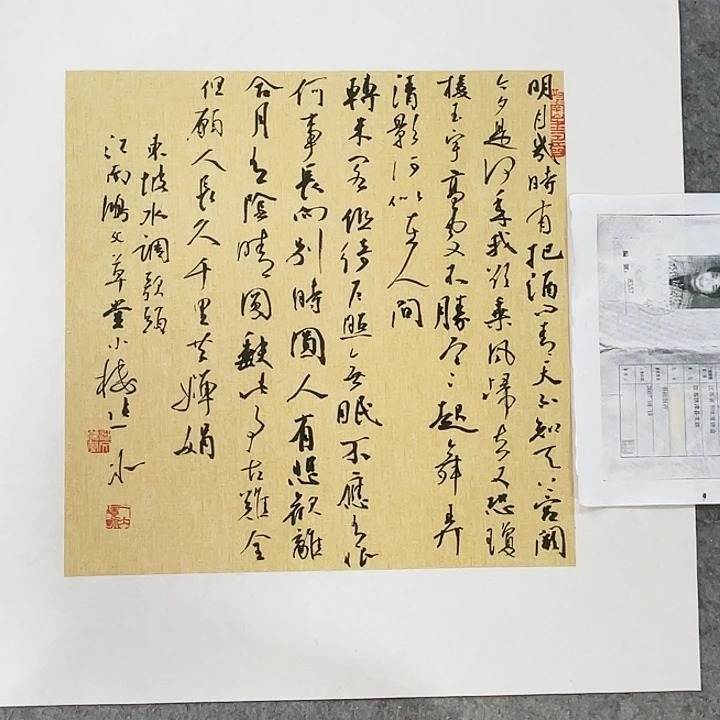 明月幾時有把酒问青天不知天上宫闕
今夕是何年我欲乘风歸去又恐瓊
樓玉宇高處不勝寒起舞弄
清影何似在人間
轉朱閣低绮户照無眠不應有恨
何事長向别時圓人有悲歡離
合月有陰晴圓缺此事古難全
但願人長久千里共嬋娟
東坡水調歌頭
江南鴻文草堂小樓